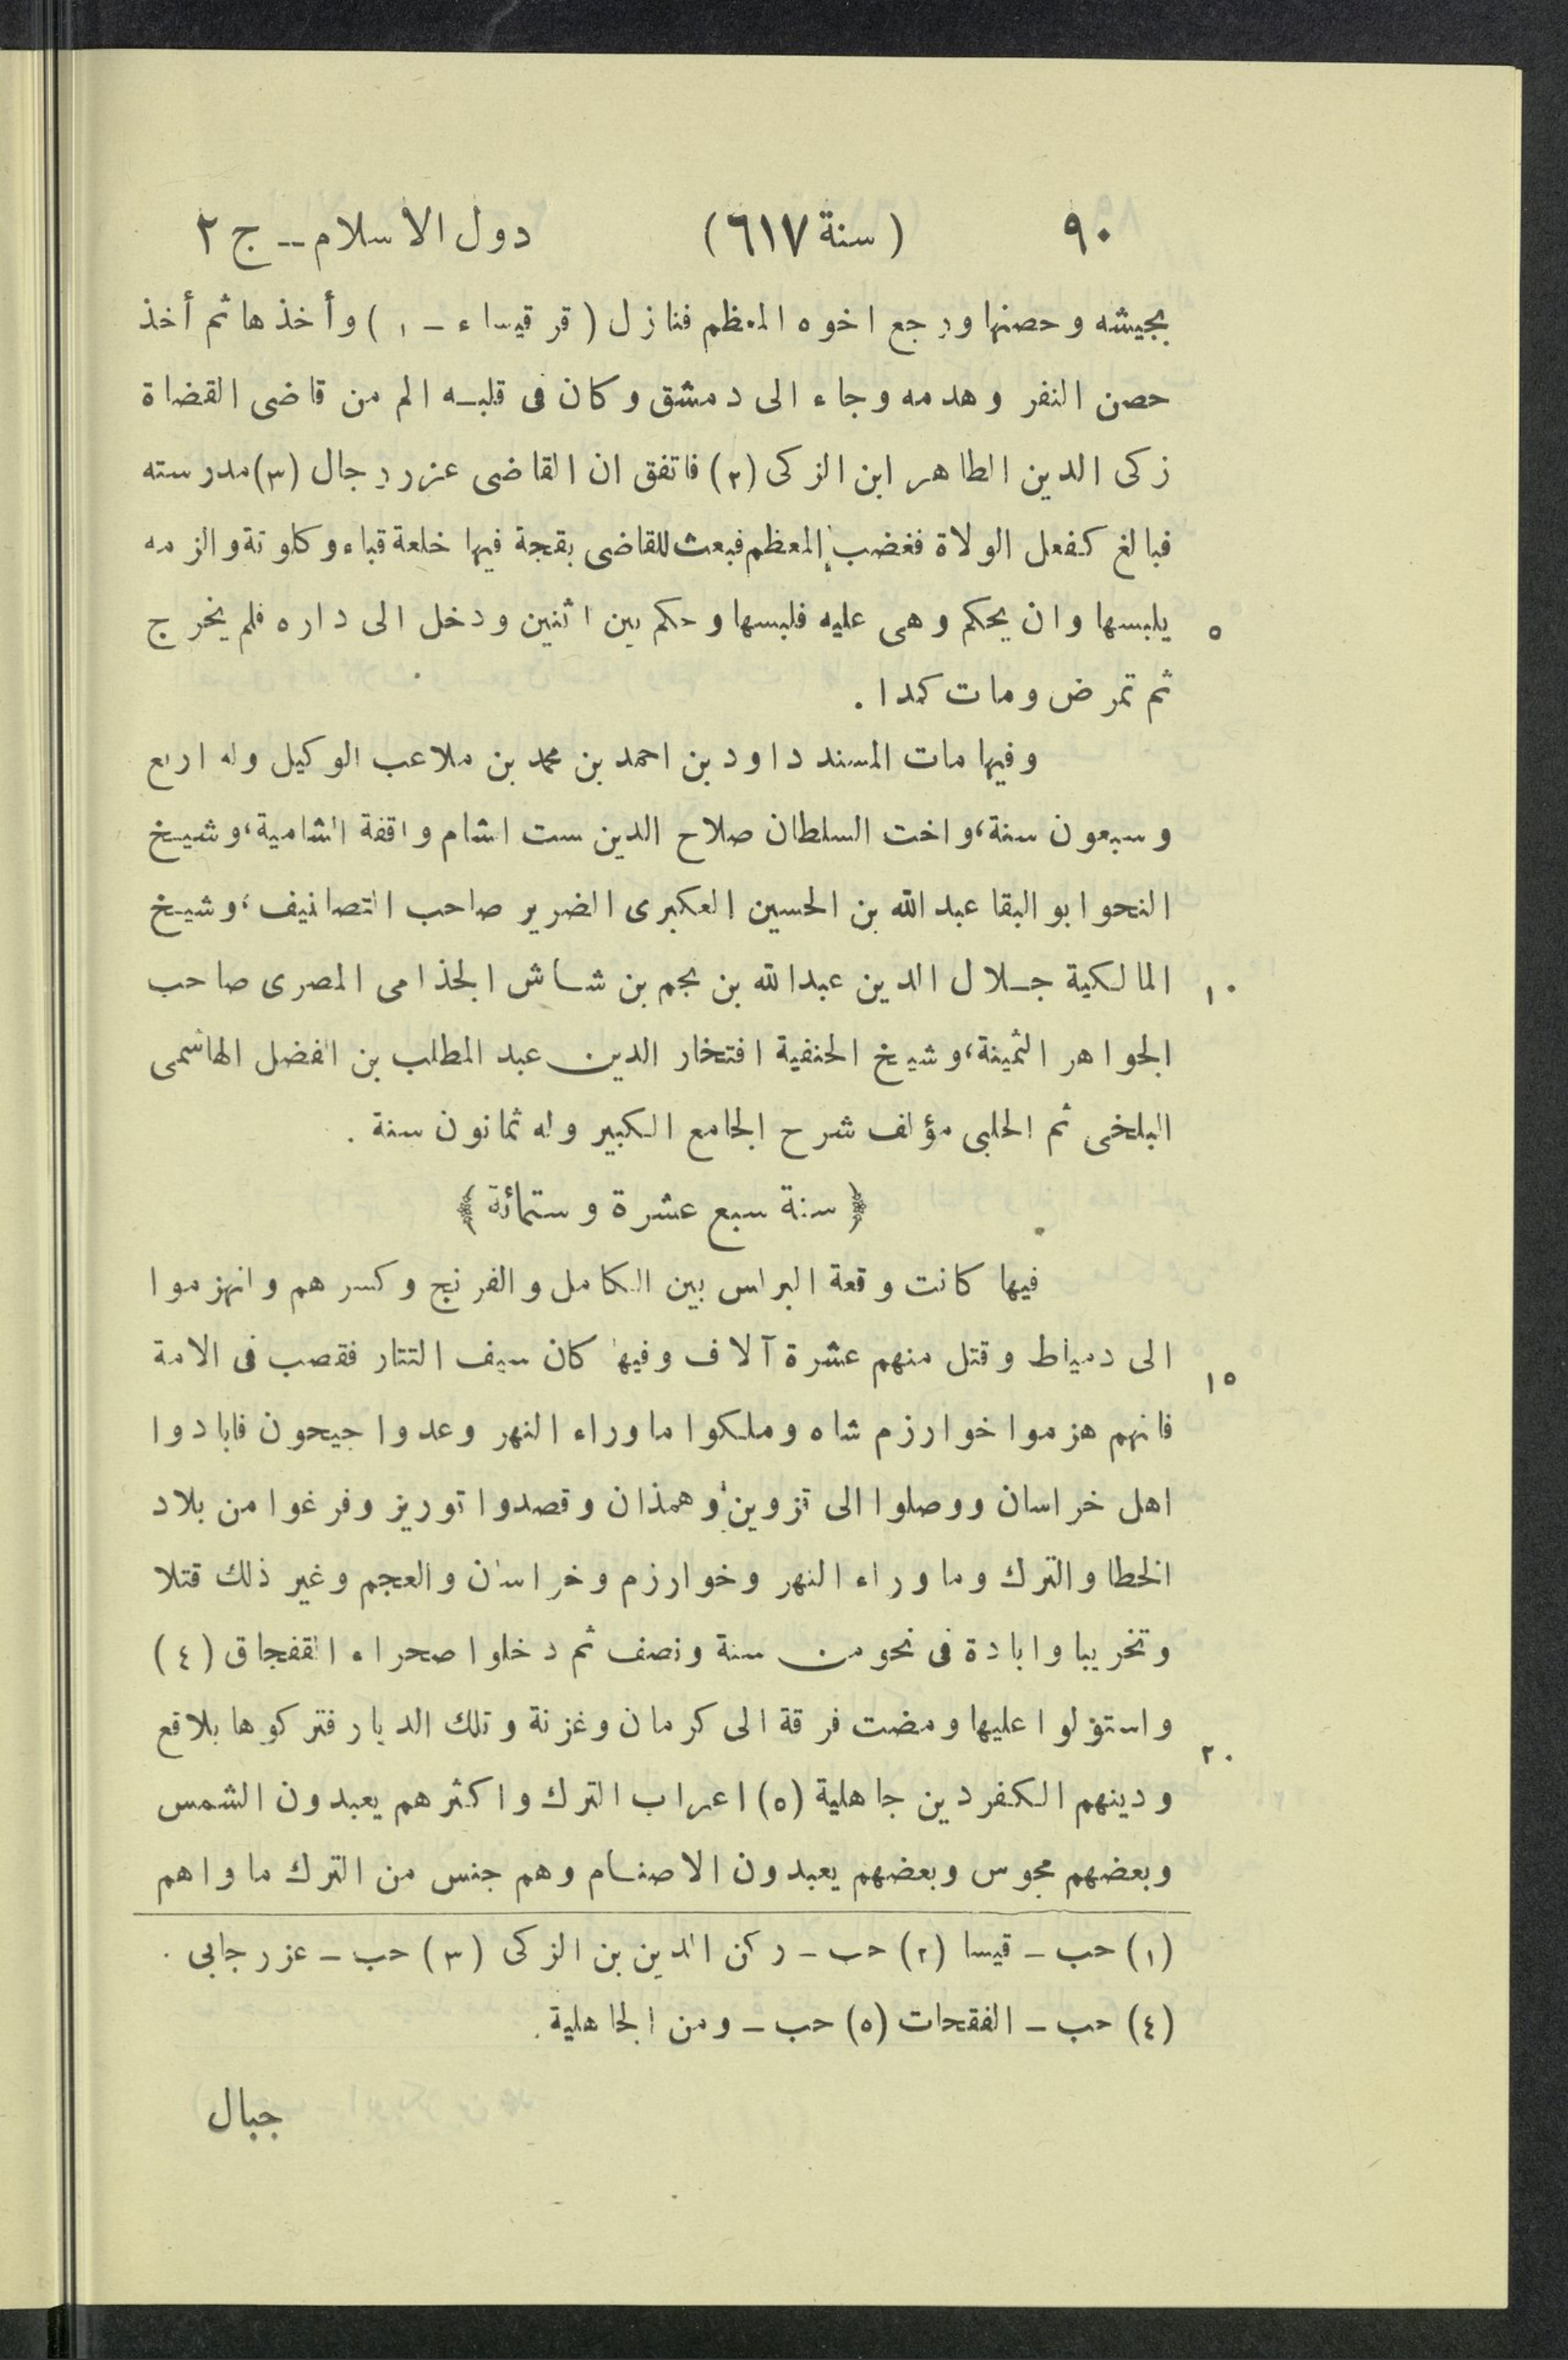 ٩٠ (سنة ٦١٧) دول الاسلام -- ج ٢
بجيشه وحصنها ورجع اخوه المعظم فنازل (قرقيساء - ١) وأخذها ثم أخذ
حصن النفر وهدمه وجاء الى دمشق وكان فى قلبه الم من قاضى القضاة
زكى الدين الطاهر ابن الزكى (٢) فاتفق ان القاضى عزر رجال (٣) مدرسته
فبالغ كفعل الولاة فغضب المعظم فبعث للقاضى بقجة فيها خلعة قباء وكلوتة والزمه
٥ يلبسها وان يحكم وهى عليه فلبسها وحكم بين اثنين ودخل الى داره فلم يخرج
ثم تمرض ومات كمدا .
وفيها مات المسند داود بن احمد بن محمد بن ملاعب الوكيل وله اربع
وسبعون سنة، واخت السلطان صلاح الدين ست الشام واقفة الشامية، وشيخ
النحو ابو البقا عبد الله بن الحسين العكبرى الضرير صاحب التصانيف، وشيخ
١٠ المالكية جلال الدين عبدالله بن نجم بن شاش الجذامى المصرى صاحب
الجواهر الثمينة، وشيخ الحنفية افتخار الدين عبد المطلب بن الفضل الهاشمى
البلخى ثم الحلبى مؤلف شرح الجامع الكبير وله ثمانون سنة .
﴿ سنة سبع عشرة وستمائة ﴾
فيها كانت وقعة البراس بين الكامل والفرنج وكسرهم وانهزموا
١٥ الى دمياط وقتل منهم عشرة آلاف وفيها كان سيف التتار فقصب فى الامة
فانهم هزموا خوارزم شاه وملكوا ماوراء النهر وعدوا جيحون فابادوا
اهل خراسان ووصلوا الى تزوين وهمذان وقصدوا توريز وفرغوا من بلاد
الخطا والترك وما وراء النهر وخوارزم وخراسان والعجم وغير ذلك قتلا
وتخريبا وابادة فى نحو من سنة ونصف ثم دخلوا صحراء القفجاق (٤)
٢٠ واستولوا عليها ومضت فرقة الى كرمان وغزنة وتلك الديار فتركوها بلاقع
ودينهم الكفر دين جاهلية (٥) اعراب الترك واكثرهم يعبدون الشمس
وبعضهم مجوس وبعضهم يعبدون الاصنام وهم جنس من الترك ماواهم
(١) حب - قيسا (٢) حب - ركن الدين بن الزكى (٣) حب - عزر جابى .
(٤) حب - الفقحات (٥) حب - ومن الجاهلية .
جبال